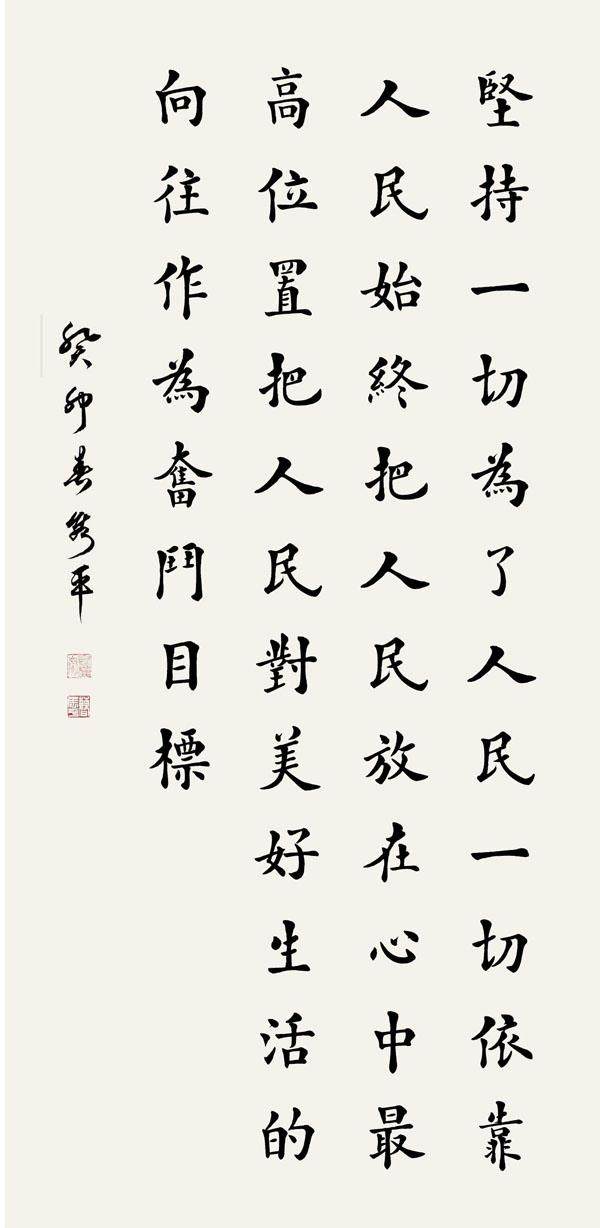 堅持一切為了人民一切依靠
人民始終把人民放在心中最
高位置把人民對美好生活的
向往作為奮鬥目標
癸卯春秀平